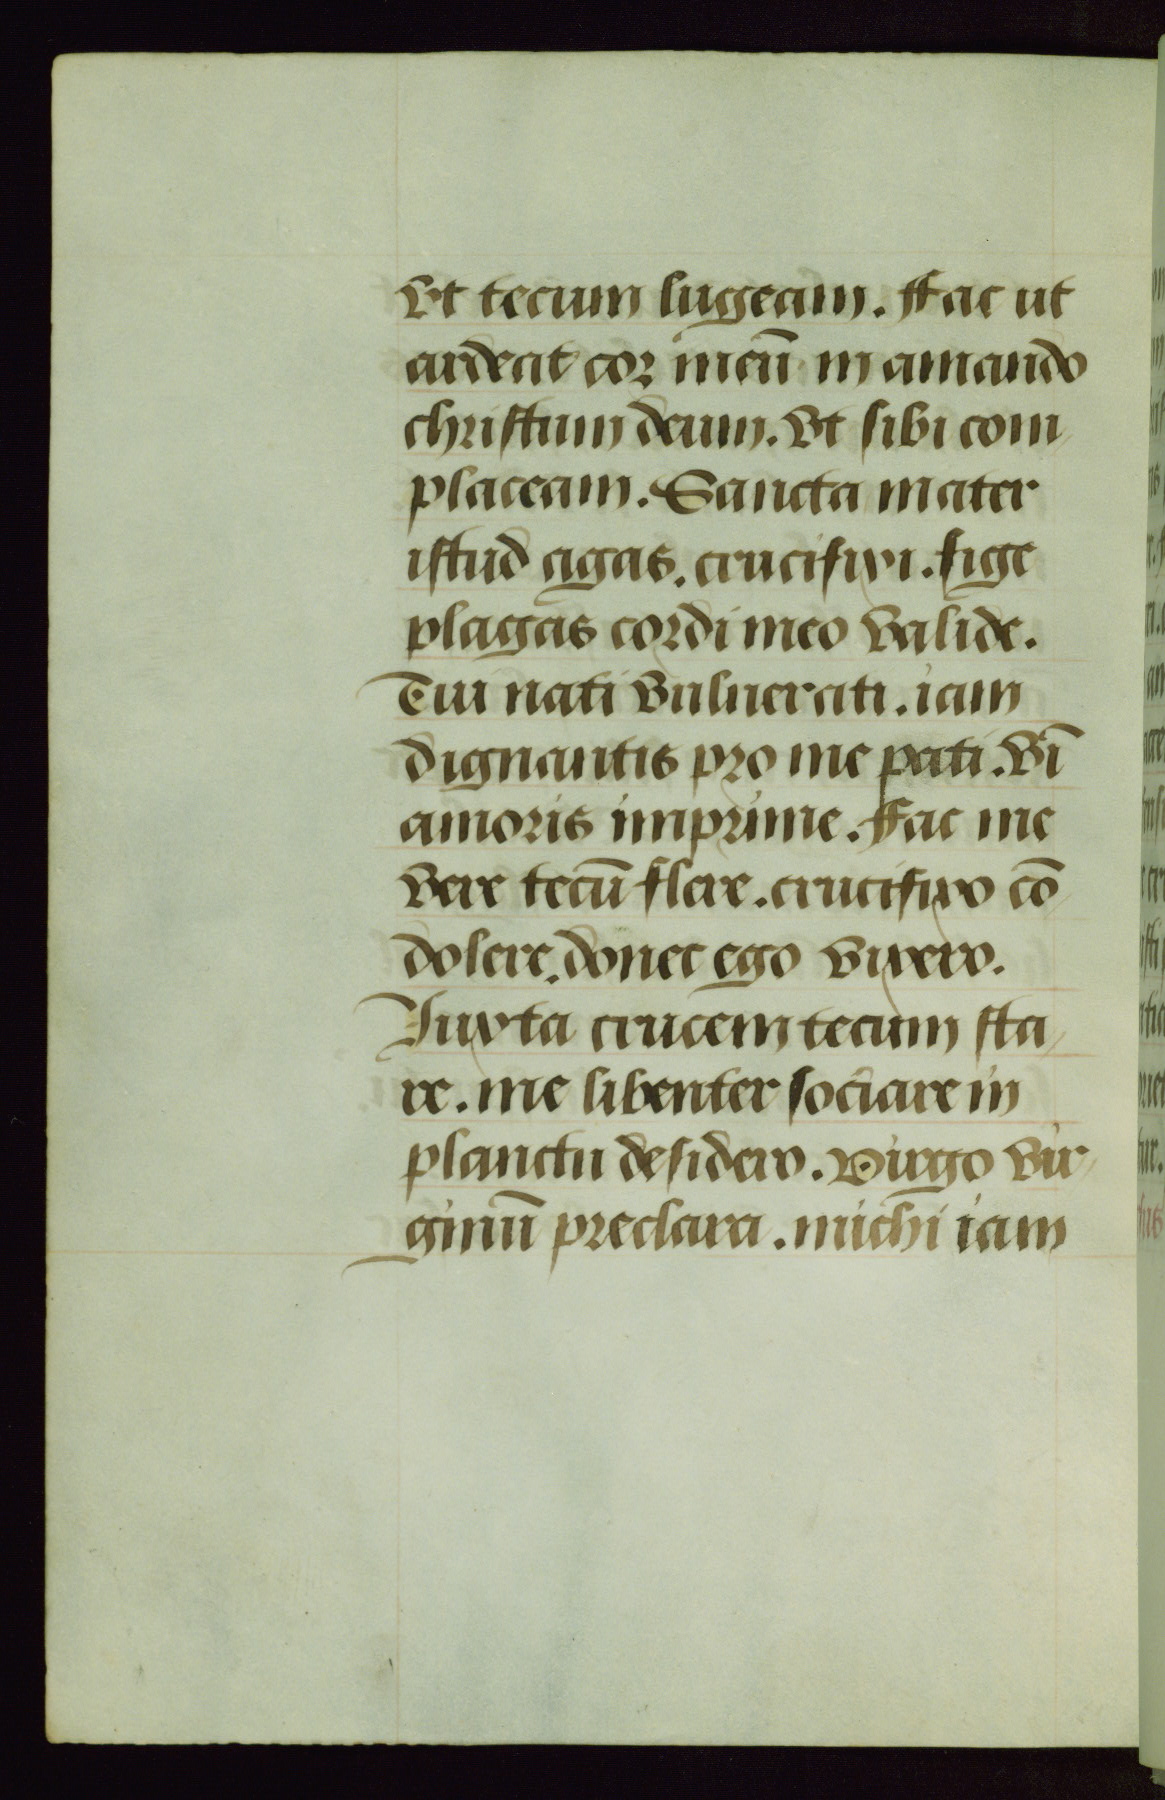 Vt tecum lugeam. Ffac ut
ardeat cor meū in amando
christum deum. Vt sibi com
placeam. Sancta mater
istud agas. crucifixi. fige
plagas cordi meo valide.
Tui nati vulnerati. iam
dignantis pro me pati. Vī
amoris imprime. Ffac me
vere tecū flere. crucifixo cō
dolere. donec ego vixero.
Iuxta crucem tecum sta
re. me libenter sociare in
planctu desidero. Virgo vir
ginū preclara. michi iam